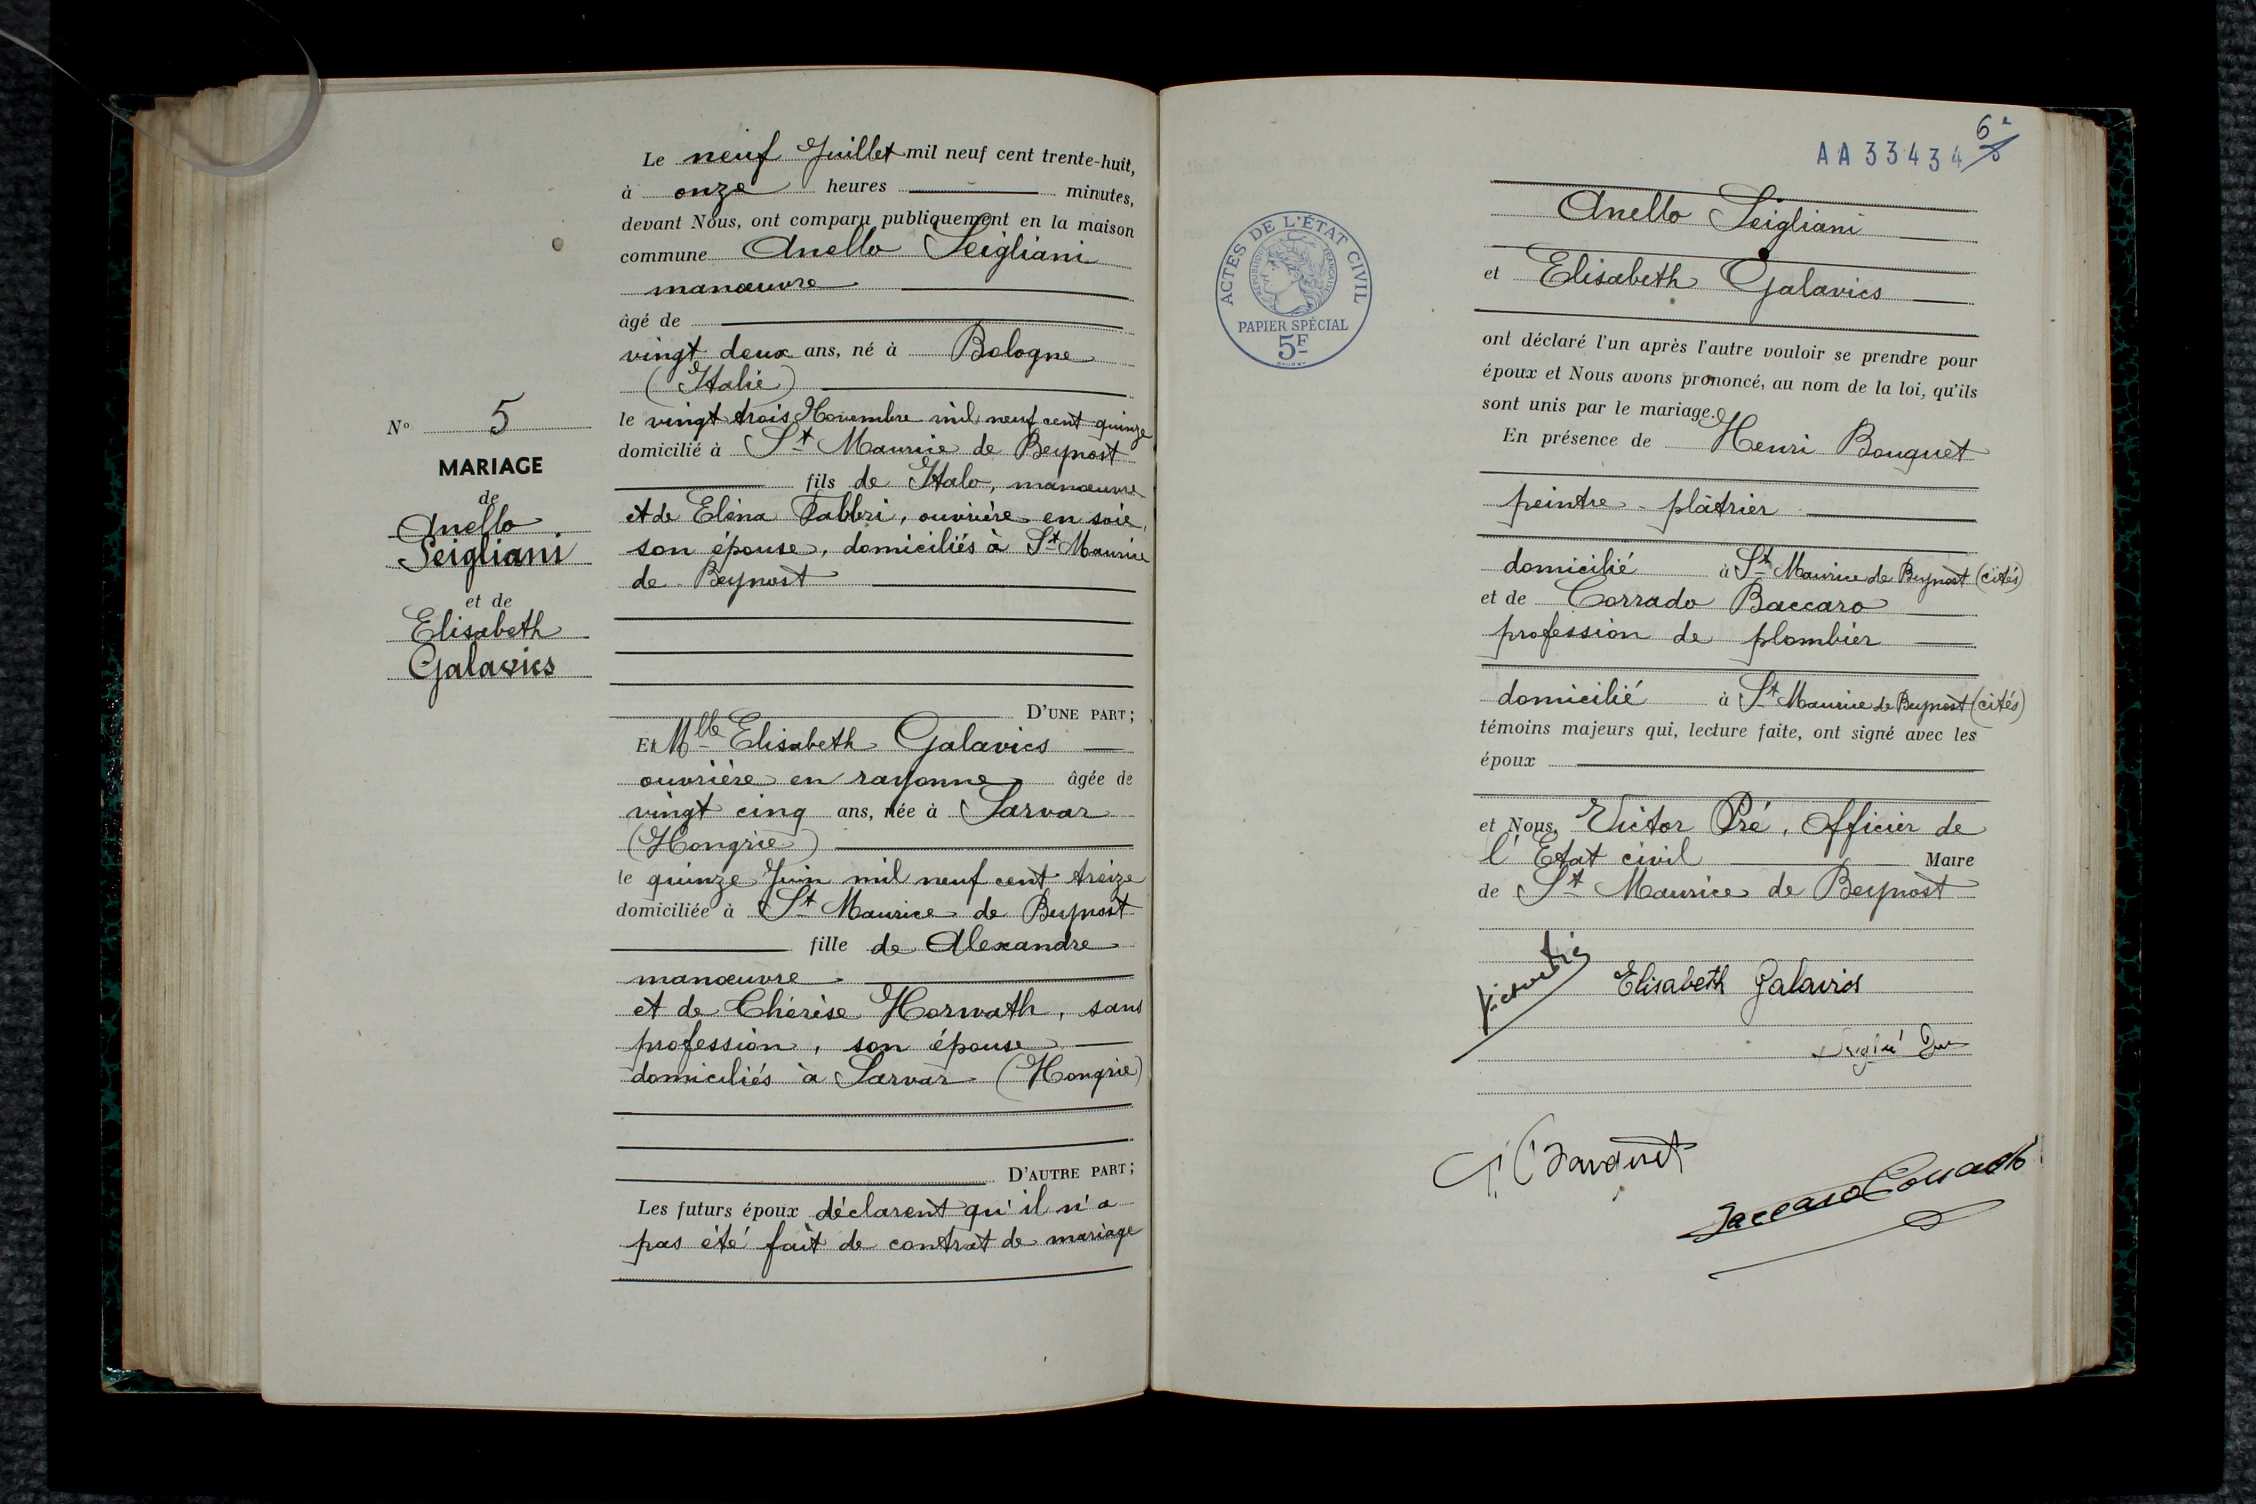 Le neuf Juillet mil neuf cent trente-huit,
à onze heures minutes,
devant Nous, ont comparu publiquement en la maison
commune Anello Seigliani
manœuvre
âgé de
vingt deux ans, né à Bologne
(Italie)
le vingt trois Novembre mil neuf cent quinze
domicilié à St Maurice de Beynost
fils de Italo, manœuvre
et de Eléna Fabbri, ouvrière en soie,
son épouse, domiciliés à St Maurice
de Beynost
D'UNE PART;
Et Mlle Elisabeth Galavics
ouvrière en rayonne âgée de
vingt cinq ans, née à Sarvar
(Hongrie)
le quinze Juin mil neuf cent treize
domiciliée à St Maurice de Beynost
fille de Alexandre
manœuvre
et de Thérèse Horwath, sans
profession, son épouse
domiciliés à Sarvar (Hongrie)
D'AUTRE PART;
Les futurs époux déclarent qu'il n'a
pas été fait de contrat de mariage
No 5
MARIAGE
de
Anello
Seigliani
et de
Elisabeth
Galavics
6e
AA33434
ACTES DE L'ÉTAT CIVIL
RÉPUBLIQUE FRANÇAISE
PAPIER SPÉCIAL
5F
Anello Seigliani
et Elisabeth Galavics
ont déclaré l'un après l'autre vouloir se prendre pour
époux et Nous avons prononcé, au nom de la loi, qu'ils
sont unis par le mariage.
En présence de Henri Bouquet
peintre-plâtrier
domicilié à St Maurice de Beynost (cités)
et de Corrado Baccaro
profession de plombier
domicilié à St Maurice de Beynost (cités)
témoins majeurs qui, lecture faite, ont signé avec les
époux
et Nous, Victor Pré, Officier de
l'Etat civil Maire
de St Maurice de Beynost
Elisabeth Galavics
H Bouquet
Baccaro Corrado